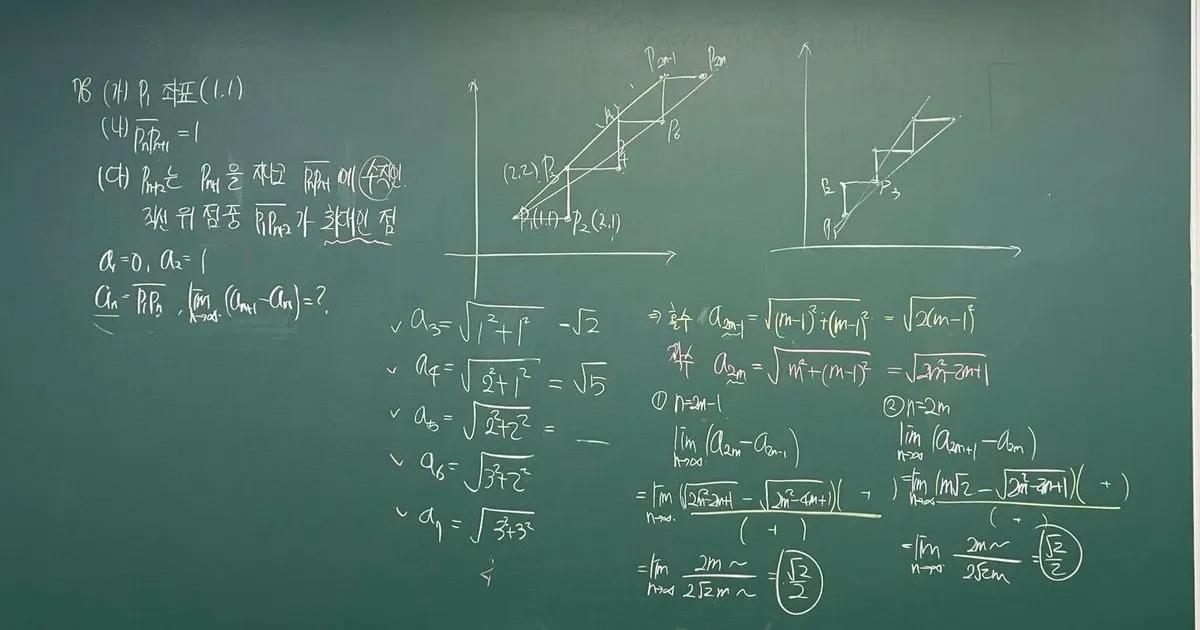 78 (가) P₁ 좌표 (1.1)
(나) P̅ₙP̅ₙ₊₁ = 1
(다) Pₙ₊₂는 Pₙ₊₁을 지나고 P̅ₙP̅ₙ₊₁에 수직인
직선 위 점 중 P̅₁P̅ₙ₊₂가 최대인 점
a₁=0, a₂=1
aₙ = P̅₁P̅ₙ, lim n→∞ (aₙ₊₁-aₙ) = ?
P₂ₘ₋₁ P₂ₘ
P₆
(2.2) P₃
P₁(1.1) P₂(2,1)
P₂ P₃
P₁
a₃ = √(1²+1²) -√2
a₄ = √(2²+1²) = √5
a₅ = √(2²+2²) = __
a₆ = √(3²+2²)
a₇ = √(3²+3²)
⇒ 홀수 a₂ₘ₋₁ = √((m-1)²+(m-1)²) = √(2(m-1)²)
짝수 a₂ₘ = √(m²+(m-1)²) = √(2m²-2m+1)
① n=2m-1
lim n→∞ (a₂ₘ-a₂ₘ₋₁)
= lim n→∞ (√(2m²-2m+1) - √(2m²-4m+1))( + ) / ( + )
= lim n→∞ 2m~ / 2√2m~ = √2/2
② n=2m
lim n→∞ (a₂ₘ₊₁-a₂ₘ)
= lim n→∞ (m√2 - √(2m²-2m+1))( + ) / ( + )
= lim n→∞ 2m~ / 2√2m = √2/2